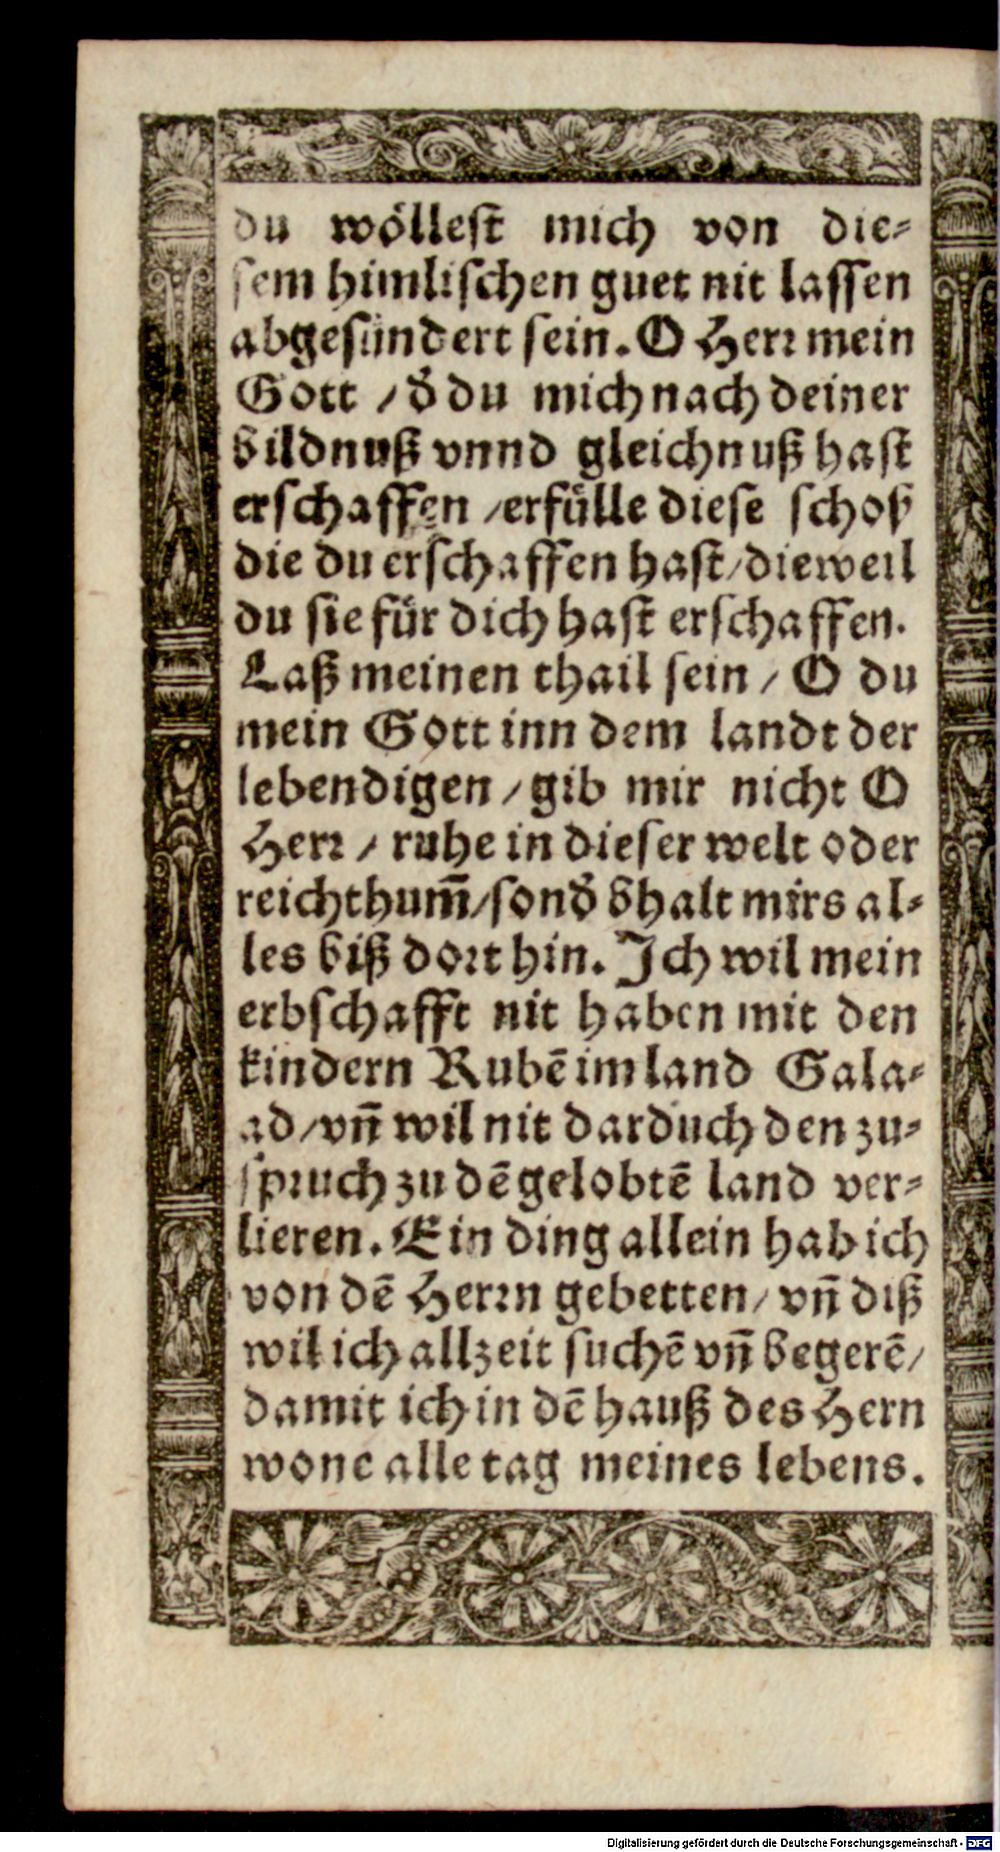 du wöllest mich von die-
sem himlischen guet nit lassen
abgesündert sein. O Herr mein
Gott / d̛ du mich nach deiner
bildnuß vnnd gleichnuß hast
erschaffen / erfülle diese schoß
die du erschaffen hast / dieweil
du sie für dich hast erschaffen.
Laß meinen thail sein / O du
mein Gott inn dem landt der
lebendigen / gib mir nicht O
Herr / ruhe in dieser welt oder
reichthum̃ / sond̛ bhalt mirs al-
les biß dort hin. Ich wil mein
erbschafft nit haben mit den
kindern Rubē im land Gala-
ad / vñ wil nit darduch den zu-
spruch zu dē gelobtē land ver-
lieren. Ein ding allein hab ich
von dē Herrn gebetten / vñ diß
wil ich allzeit suchē vñ begerē /
damit ich in dē hauß des Hern
wone alle tag meines lebens.
Digitalisierung gefördert durch die Deutsche Forschungsgemeinschaft - DFG